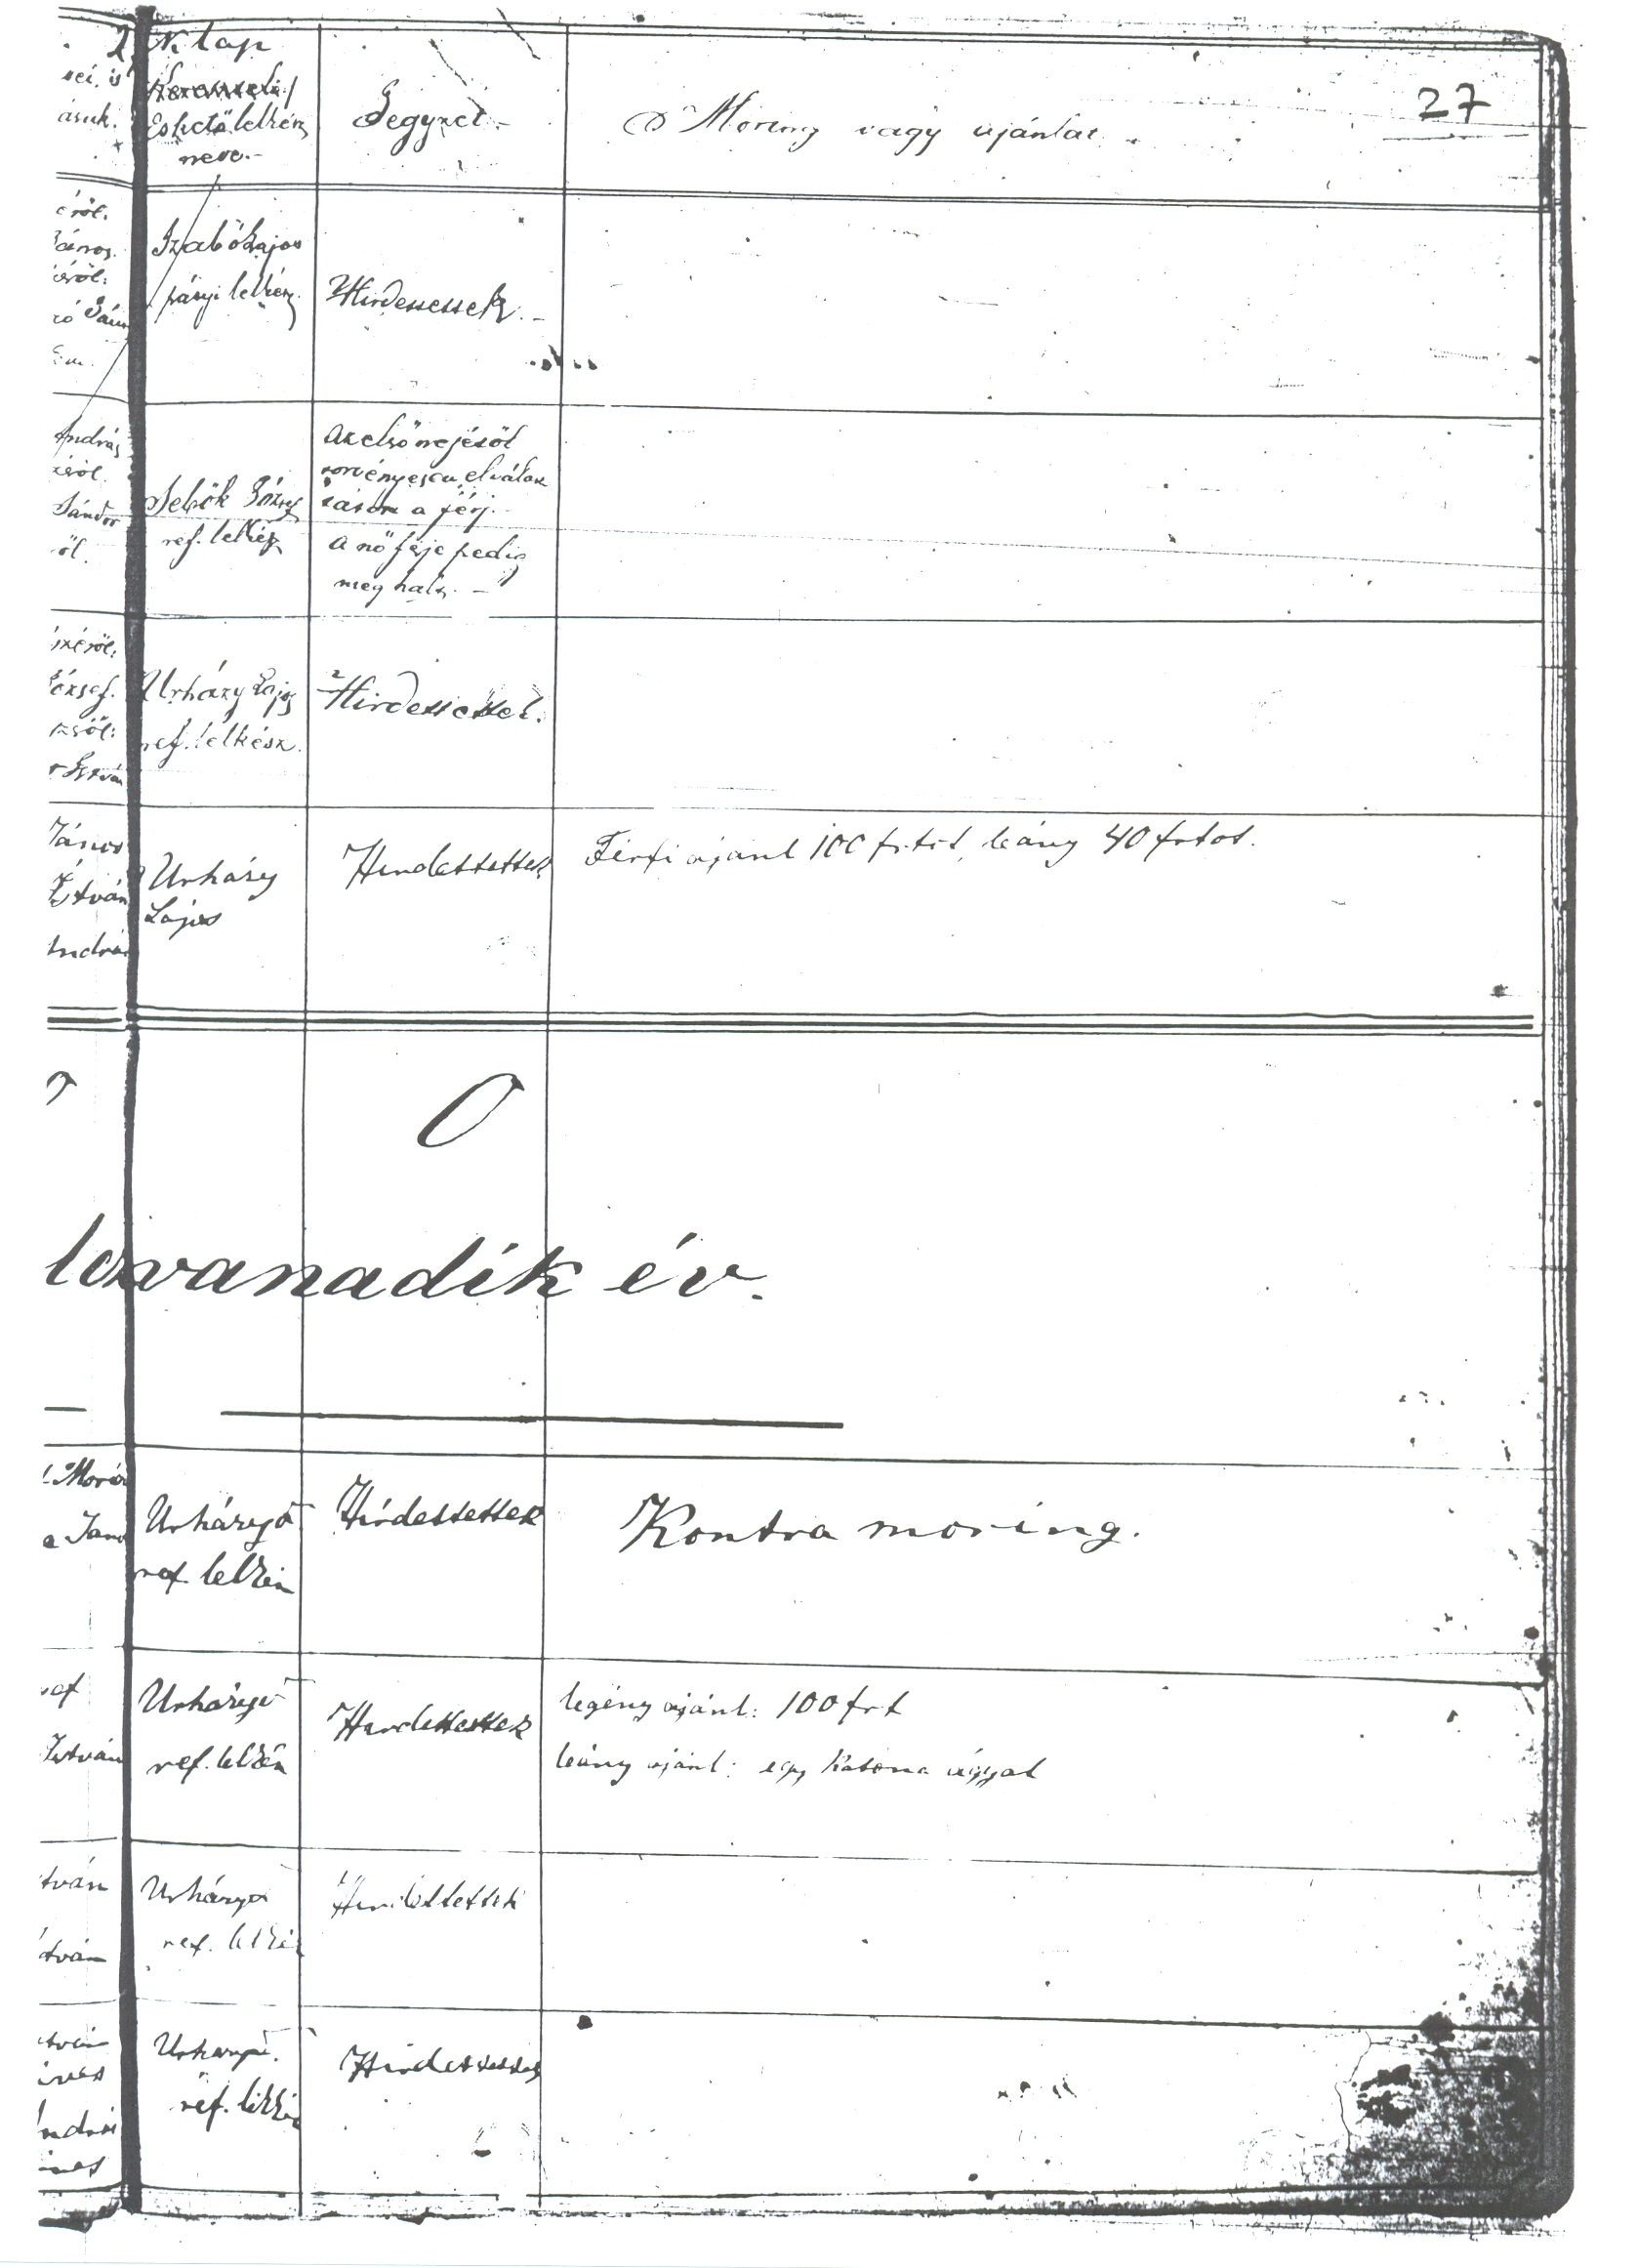 27
lap
Eskető lelkész
neve.-
Jegyzet.-
Móring vagy ajánlat.
sei is
ások.
éről.
János.
éről:
Szabó Lajos
pásyi lelkész.
Hirdettettek.-
András
éről.
Sándor
ől.
Sebők József
ref. lelkész
Az első nejétől
törvényesen elválasz
tatott a férj.-
A nő férje pedig
meghalt.-
széről:
József.
széről:
István
Urházy Lajos
ref. lelkész.
Hirdettettek.
János
István
András
Urházy
Lajos
Hirdettettek
Férfi ajánl 100 frtot, leány 40 frtot.
0
lovanadik év.
Urházy
ref. lelkész
Hirdettettek
Kontra moring.
István
Urházy
ref. lelkész
Hirdettettek
legény ajánl: 100 frt
leány ajánl: egy katona ágyat
tván
István
Urházy
ref. lelkész
Hirdettettek
Urházy
ref. lelkész
Hirdettettek